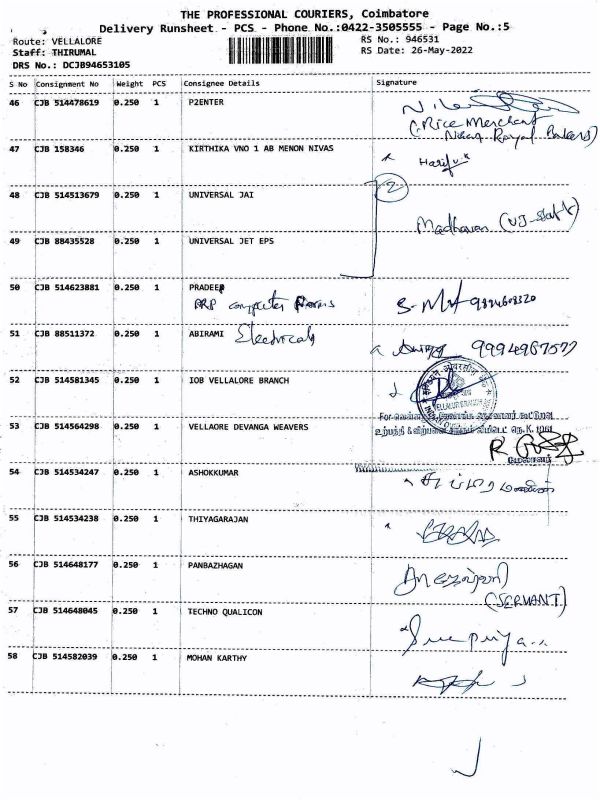 THE PROFESSIONAL COURIERS, Coimbatore
Delivery Runsheet - PCS - Phone No.:0422-3505555 - Page No.:5
Route: VELLALORE RS No.: 946531
Staff: THIRUMAL RS Date: 26-May-2022
DRS No.: DCJB94653105
S No Consignment No Weight PCS Consignee Details Signature
46 CJB 514478619 0.250 1 P2ENTER
(Rice Merchant
47 CJB 158346 0.250 1 KIRTHIKA VNO 1 AB MENON NIVAS
2
48 CJB 514513679 0.250 1 UNIVERSAL JAI
Madhavan (UJ-staff)
49 CJB 88435528 0.250 1 UNIVERSAL JET EPS
50 CJB 514623881 0.250 1 PRADEEP
computer
51 CJB 88511372 0.250 1 ABIRAMI Electricals 9994987577
52 CJB 514581345 0.250 1 IOB VELLALORE BRANCH
53 CJB 514564298 0.250 1 VELLAORE DEVANGA WEAVERS
54 CJB 514534247 0.250 1 ASHOKKUMAR
55 CJB 514534238 0.250 1 THIYAGARAJAN
56 CJB 514648177 0.250 1 PANBAZHAGAN
(SERVANT)
57 CJB 514648045 0.250 1 TECHNO QUALICON
58 CJB 514582039 0.250 1 MOHAN KARTHY